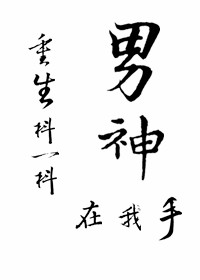 男神
在我手
重生抖一抖